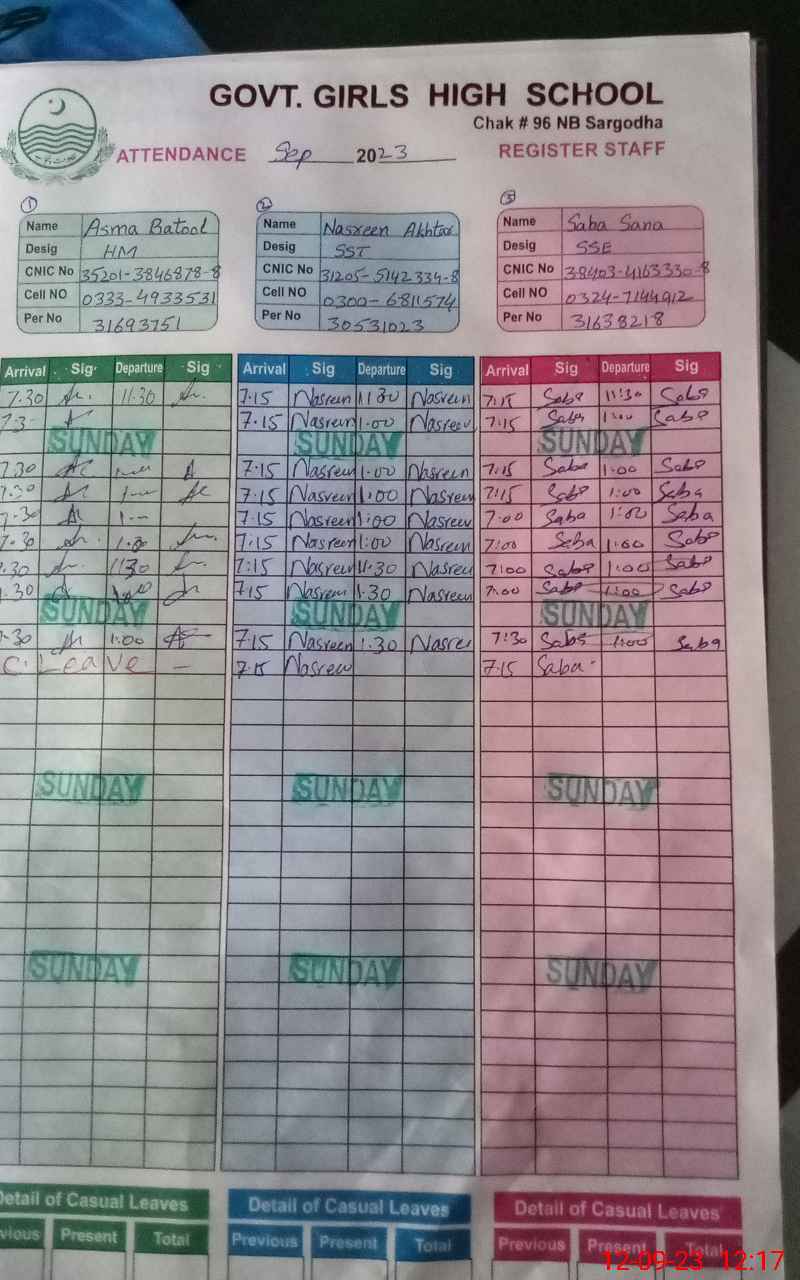 GOVT. GIRLS HIGH SCHOOL
Chak # 96 NB Sargodha
ATTENDANCE Sep 2023 REGISTER STAFF
1 2 3
Name Asma Batool Name Nasreen Akhtar Name Saba Sana
Desig HM Desig SST Desig SSE
CNIC No 35201-3846878-8 CNIC No 31205-5142334-8 CNIC No 38403-4163330-8
Cell NO 0333-4933531 Cell NO 0300-6811574 Cell NO 0324-7144912
Per No 31693751 Per No 30531023 Per No 31638218
Arrival Sig Departure Sig Arrival Sig Departure Sig Arrival Sig Departure Sig
7.30 11.30 7.15 Nasreen 11 30 Nasreen 7:15 Saba 11:30 Saba
7.15 Nasreen 1.00 Nasreen 7:15 Saba 1:00 Saba
SUNDAY SUNDAY SUNDAY
7.30 7.15 Nasreen 1.00 Nasreen 7:15 Saba 1:00 Saba
7.30 7.15 Nasreen 1:00 Nasreen 7:15 Saba 1:00 Saba
7.30 7.15 Nasreen 1:00 Nasreen 7:00 Saba 1:00 Saba
7.30 1.00 7.15 Nasreen 1:00 Nasreen 7:00 Saba 1:00 Saba
.30 1130 7:15 Nasreen 11.30 Nasreen 7:00 Saba 1:00 Saba
.30 7.15 Nasreen 1.30 Nasreen 7:00 Saba 1:00 Saba
SUNDAY SUNDAY SUNDAY
.30 1:00 7.15 Nasreen 1.30 Nasree 7:30 Saba 1:00 Saba
C. Leave - 7.15 Nasreen 7.15 Saba
SUNDAY SUNDAY SUNDAY
SUNDAY SUNDAY SUNDAY
Detail of Casual Leaves Detail of Casual Leaves Detail of Casual Leaves
vious Present Total Previous Present Total Previous Present Total
12-09-23 12:17